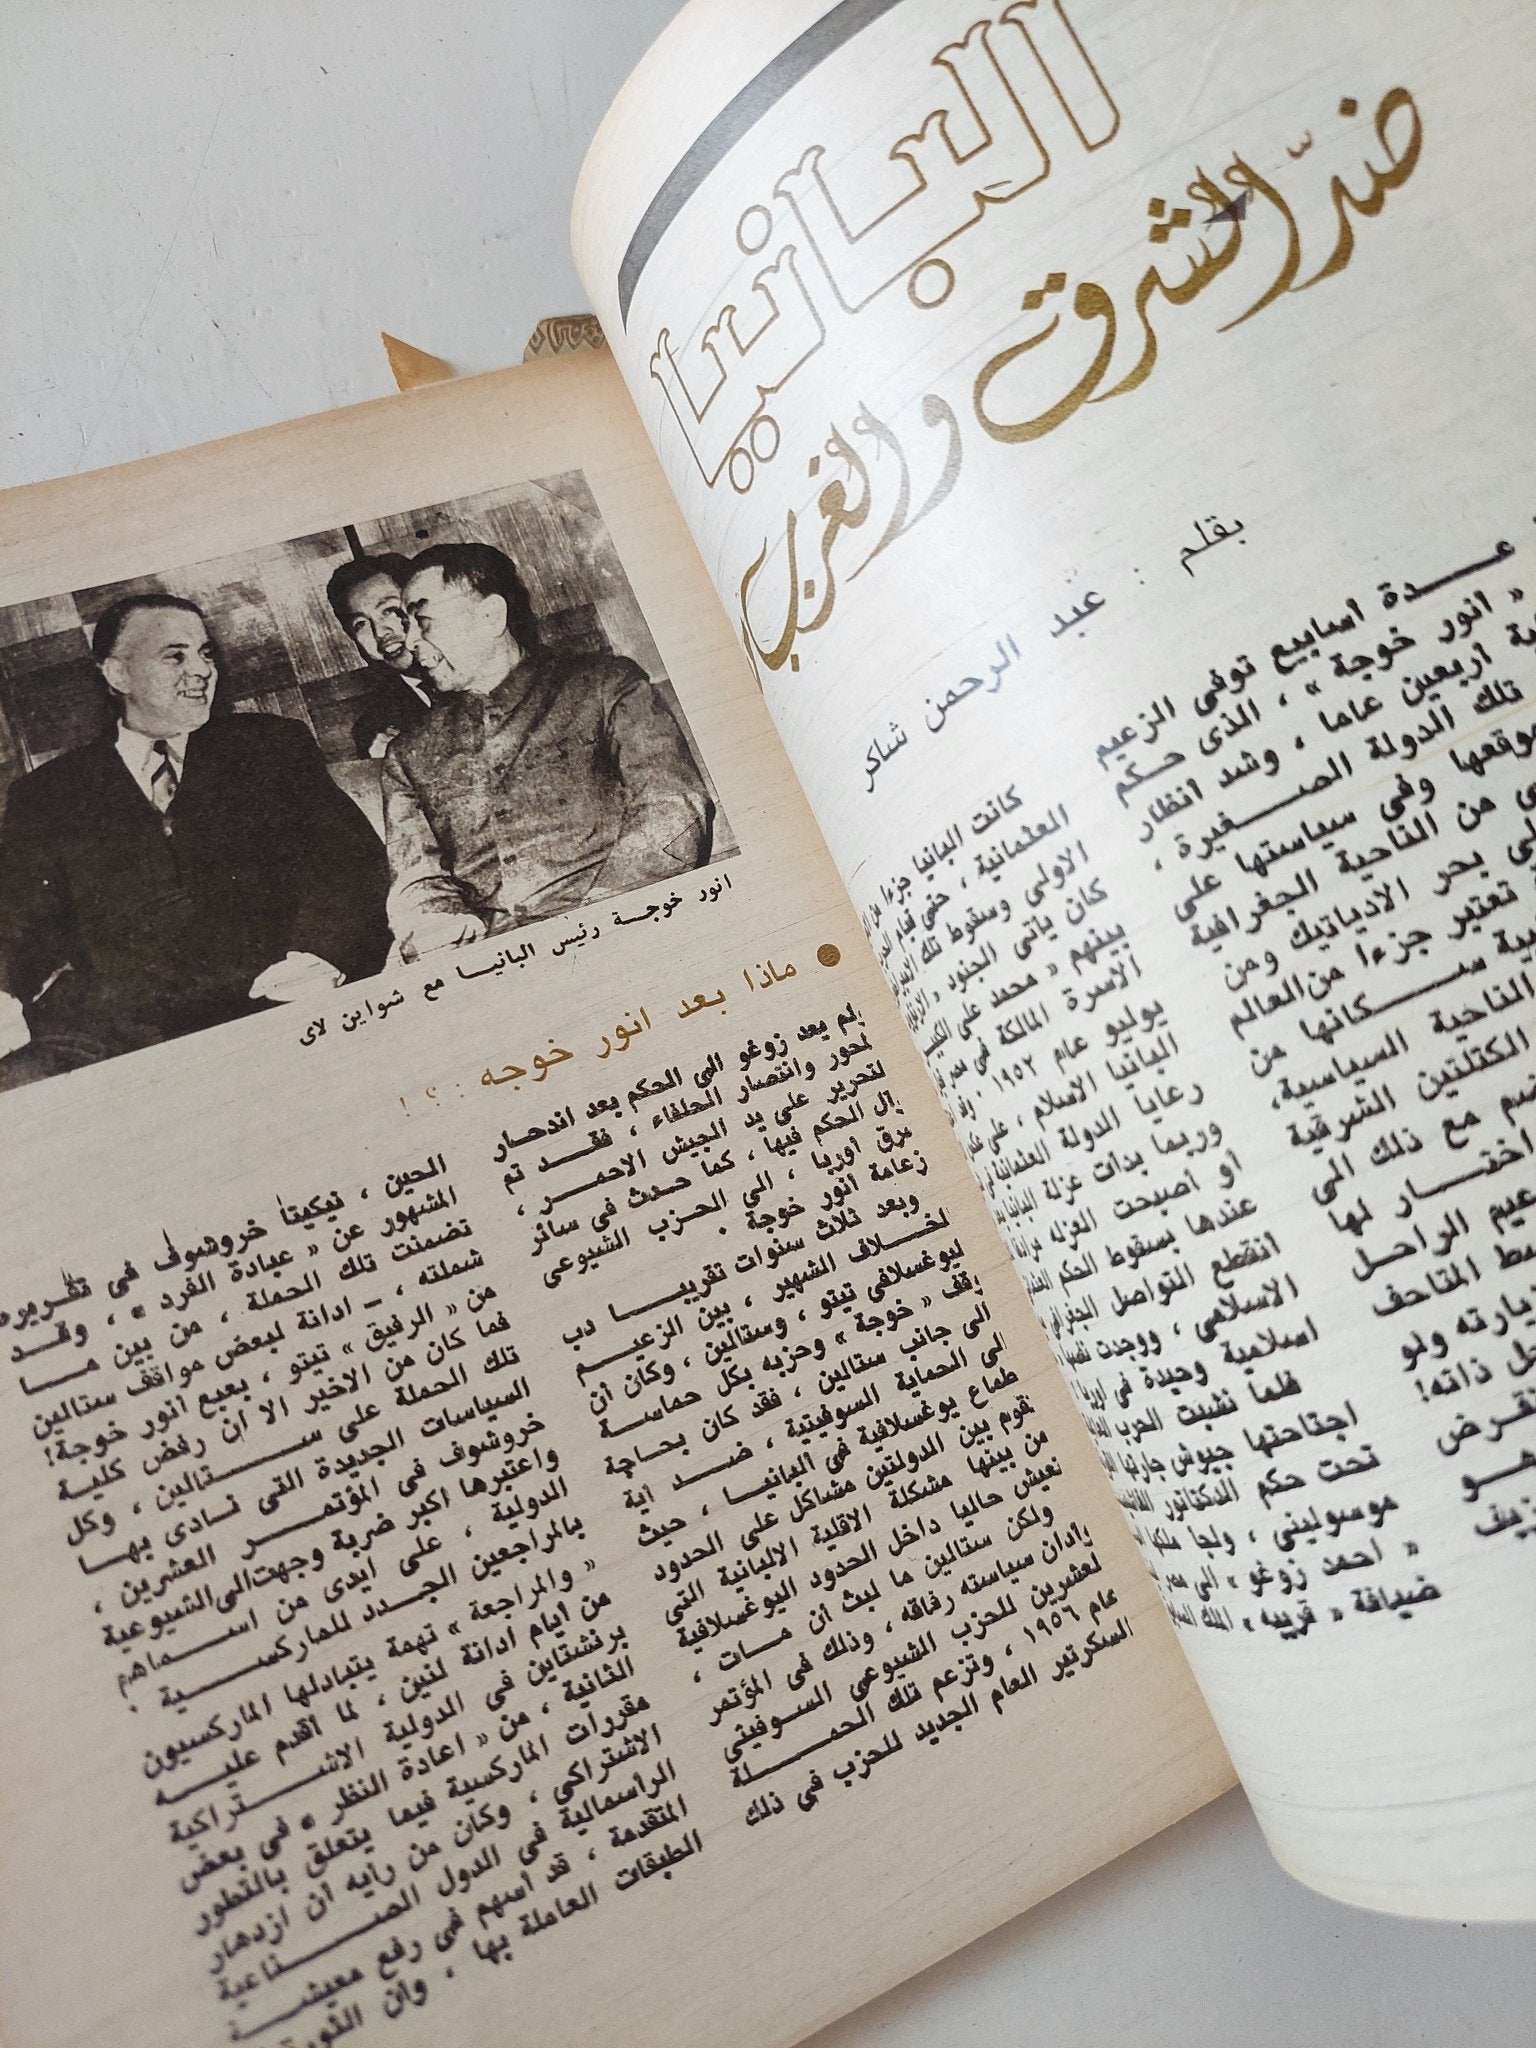 ألبانيا
ضدّ الشرق والغرب
بقلم : عبد الرحمن شاكر
عدة أسابيع توفى الزعيم
« انور خوجة » ، الذى حكم
أربعين عاما ، وشد انظار
تلك الدولة الصغيرة ،
موقعها وفى سياستها على
من الناحية الجغرافية
بحر الادرياتيك ومن
تعتبر جزءا من العالم
سكانها من
الناحية السياسية،
الكتلتين الشرقية
مع ذلك الى
اختار لها
الراحل
المتاحف
زيارته ولو
ذاته!
كانت البانيا جزءا من
العثمانية ، حتى قيام
الاولى وسقوط تلك
كان يأتى الجنود
بينهم « محمد على
الاسرة المالكة فى
يوليو عام ١٩٥٢ .
البانيا الاسلام ، على
رعايا الدولة العثمانية
وربما بدأت عزلة البانيا
أو أصبحت العزلة
عندها بسقوط الحكم
انقطع التواصل الجغرافى
الاسلامى ، ووجدت
اسلامية وحيدة فى أوربا
فلما نشبت الحرب
اجتاحتها جيوش جارتها
تحت حكم الدكتاتور
موسولينى ، ولجأ ملكها
« احمد زوغو » الى
ضيافة « قريبه » الملك
انور خوجة رئيس البانيا مع شواين لاى
● ماذا بعد انور خوجه : ؟ !
ولم يعد زوغو الى الحكم بعد اندحار
المحور وانتصار الحلفاء ، فقد تم
التحرير على يد الجيش الاحمر ،
وآل الحكم فيها ، كما حدث فى سائر
شرق أوربا ، الى الحزب الشيوعى
زعامة أنور خوجة .
وبعد ثلاث سنوات تقريبا دب
الخلاف الشهير ، بين الزعيم
اليوغسلافى تيتو ، وستالين ، وكان أن
وقف « خوجة » وحزبه بكل حماسة
الى جانب ستالين ، فقد كان بحاجة
الى الحماية السوفيتية ، ضد أية
أطماع يوغسلافية فى ألبانيا ، حيث
تقوم بين الدولتين مشاكل على الحدود
من بينها مشكلة الاقلية الالبانية التى
تعيش حاليا داخل الحدود اليوغسلافية
ولكن ستالين ما لبث أن مات ،
وأدان سياسته رفاقه ، وذلك فى المؤتمر
العشرين للحزب الشيوعى السوفيتى
عام ١٩٥٦ ، وتزعم تلك الحملة
السكرتير العام الجديد للحزب فى ذلك
الحين ، نيكيتا خروشوف فى تقريره
المشهور عن « عبادة الفرد » ، وقد
تضمنت تلك الحملة ، من بين ما
شملته ، ـ ادانة لبعض مواقف ستالين
من « الرفيق » تيتو ، بعبع أنور خوجة!
فما كان من الاخير الا ان رفض كلية
تلك الحملة على ستالين ، وكل
السياسات الجديدة التى نادى بها
خروشوف فى المؤتمر العشرين ،
واعتبرها اكبر ضربة وجهت الى الشيوعية
الدولية ، على أيدى من اسماهم
بالمراجعين الجدد للماركسية .
« والمراجعة » تهمة يتبادلها الماركسيون
من أيام ادانة لنين ، لما أقدم عليه
برنشتاين فى الدولية الاشتراكية
الثانية ، من « اعادة النظر » فى بعض
مقررات الماركسية فيما يتعلق بالتطور
الاشتراكى ، وكان من رأيه أن ازدهار
الرأسمالية فى الدول الصناعية
المتقدمة ، قد أسهم فى رفع معيشة
الطبقات العاملة بها ، وأن الثورة